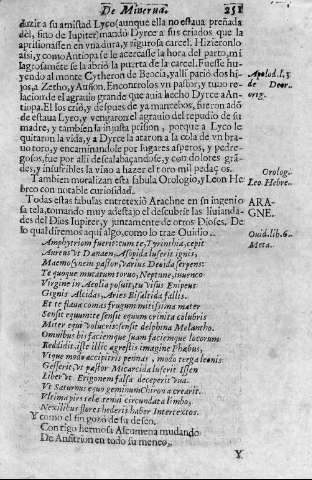 De Minerva. 251
duzir a su amistad Lyco (aunque ella no estaua preñada
dèl, sino de Iupiter) mandò Dyrce a sus criados que la
aprisionassen en vna dura, y rigurosa carcel. Hizieronlo
assi, y como Antiopa se le acercasse la hora del parto, mi
lagrosamẽte se la abriò la puerta de la carcel. Fuesse hu-
yendo al monte Cytheron de Beocia, y alli pariò dos hi-
jos, a Zetho, y Anfion. Encontrolos vn pastor, y tuuo re-
lacion de el agrauio grande que auia hecho Dyrce a An-
tiopa. El los criò, y despues de ya mancebos, fueron adõ
de estaua Lyco, y vengaron el agrauio del repudio de su
madre, y tambien la injusta prision, porque a Lyco le
quitaron la vida, y a Dyrce la ataron a la cola de vn bra
uo toro, y encaminandole por lugares asperos, y pedre-
gosos, fue por alli descalabaçandose, y con dolores gra-
des, y insufribles la vino a hazer el toro mil pedaços.
Apolod. l. 3
de Deor.
orig.
Tambien moralizan esta fabula Orologio, y Leon He
breo con notable curiosidad.
Orolog.
Leo. Hebre.
Todas estas fabulas entretexiò Arachne en su ingenio
sa tela, tomando muy adestajo el descubrir las liuianda-
des del Dios Iupiter, y juntamente de otros Dioses. De
lo qual diremos aqui algo, como lo trae Ouidio.
ARA-
GNE.
Ouid. lib. 6.
Meta.
Amphytrion fuerit cum te, Tyrinthia, cepit
Aureus vt Danaen, Asopida luserit ignis,
Mnemosynem pastor, varius Deoida serpens:
Te quoque mutatum toruo, Neptune, iuuenco
Virgine in Aeolia posuit, tu visus Enipeus
Gignis Alcidas, Aries Bisaltida fallis.
Et te flaua comas frugum mitissima mater
Sensit equum, te sensit equum crinita colubris
Mater equi volucris: sensit delphina Melantho.
Omnibus his faciemque suam faciemque locorum
Reddidit. iste illic agrestis imagine Phœbus,
Vtque modo accipitris pennas, modo terga leonis
Gesserit, vt pastor Micareida luserit Issen
Liber vt Erigonem falsa deceperit vua.
Vt Saturnus equo geminum Chirona crearit.
Vltima pars tele tenui circundata limbo,
Nexilibus flores hederis habet Intertextos.
Y como el fin gozò de su deseo,
Contigo hermosa Alcumena mudando
De Anfitrion en todo su meneo,
Y